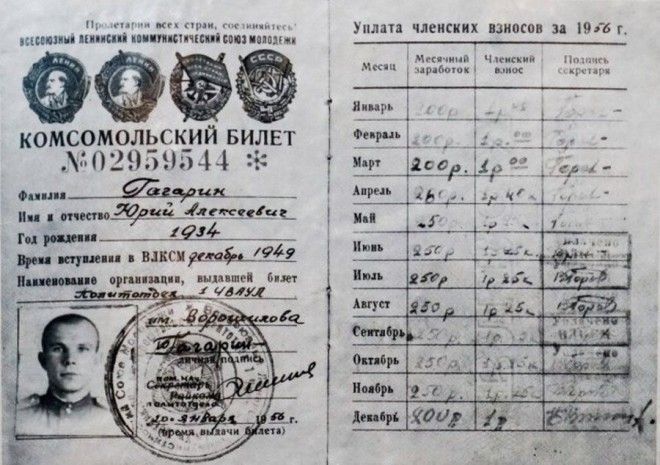 Пролетарии всех стран, соединяйтесь!
ВСЕСОЮЗНЫЙ ЛЕНИНСКИЙ КОММУНИСТИЧЕСКИЙ СОЮЗ МОЛОДЕЖИ
КОМСОМОЛЬСКИЙ БИЛЕТ
№ 02959544
Фамилия Гагарин
Имя и отчество Юрий Алексеевич
Год рождения 1934
Время вступления в ВЛКСМ декабрь 1949
Наименование организации, выдавшей билет
Политотдел 1 ЧВАУЛ
им. Ворошилова
Гагарин
личная подпись
Секретарь
Райкома
политотдела
10 января 1956 г.
(время выдачи билета)
Уплата членских взносов за 1956 г.
Месяц Месячный заработок Членский взнос Подпись секретаря
Январь 200р. 1р
Февраль 200р. 1р. 00
Март 200р. 1р 00
Апрель 1р
Май 250 1р 25к
Июнь 250р 1р 25к
Июль 250р 1р 25к
Август 250р 1р 25к
Сентябрь 250р
Октябрь 250р
Ноябрь
Декабрь 200р 1р